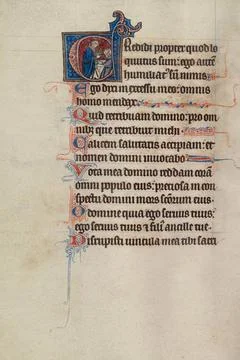 Credidi propter quod lo
quutus sum: ego autē
humiliatꝰ sū nimis.
Ego dixi in excessu meo: omnis
homo mendax.
Quid retribuam domino: pro om
nibꝫ que retribuit michi.
Calicem salutaris accipiam: et
nomen domini inuocabo.
Vota mea domino reddam corā
omni populo eius: preciosa in con
spectu domini mors scōrum eius.
O domine quia ego seruus tuus:
ego seruus tuus et filiꝰ ancille tue.
Dirupisti uincula mea tibi sacri